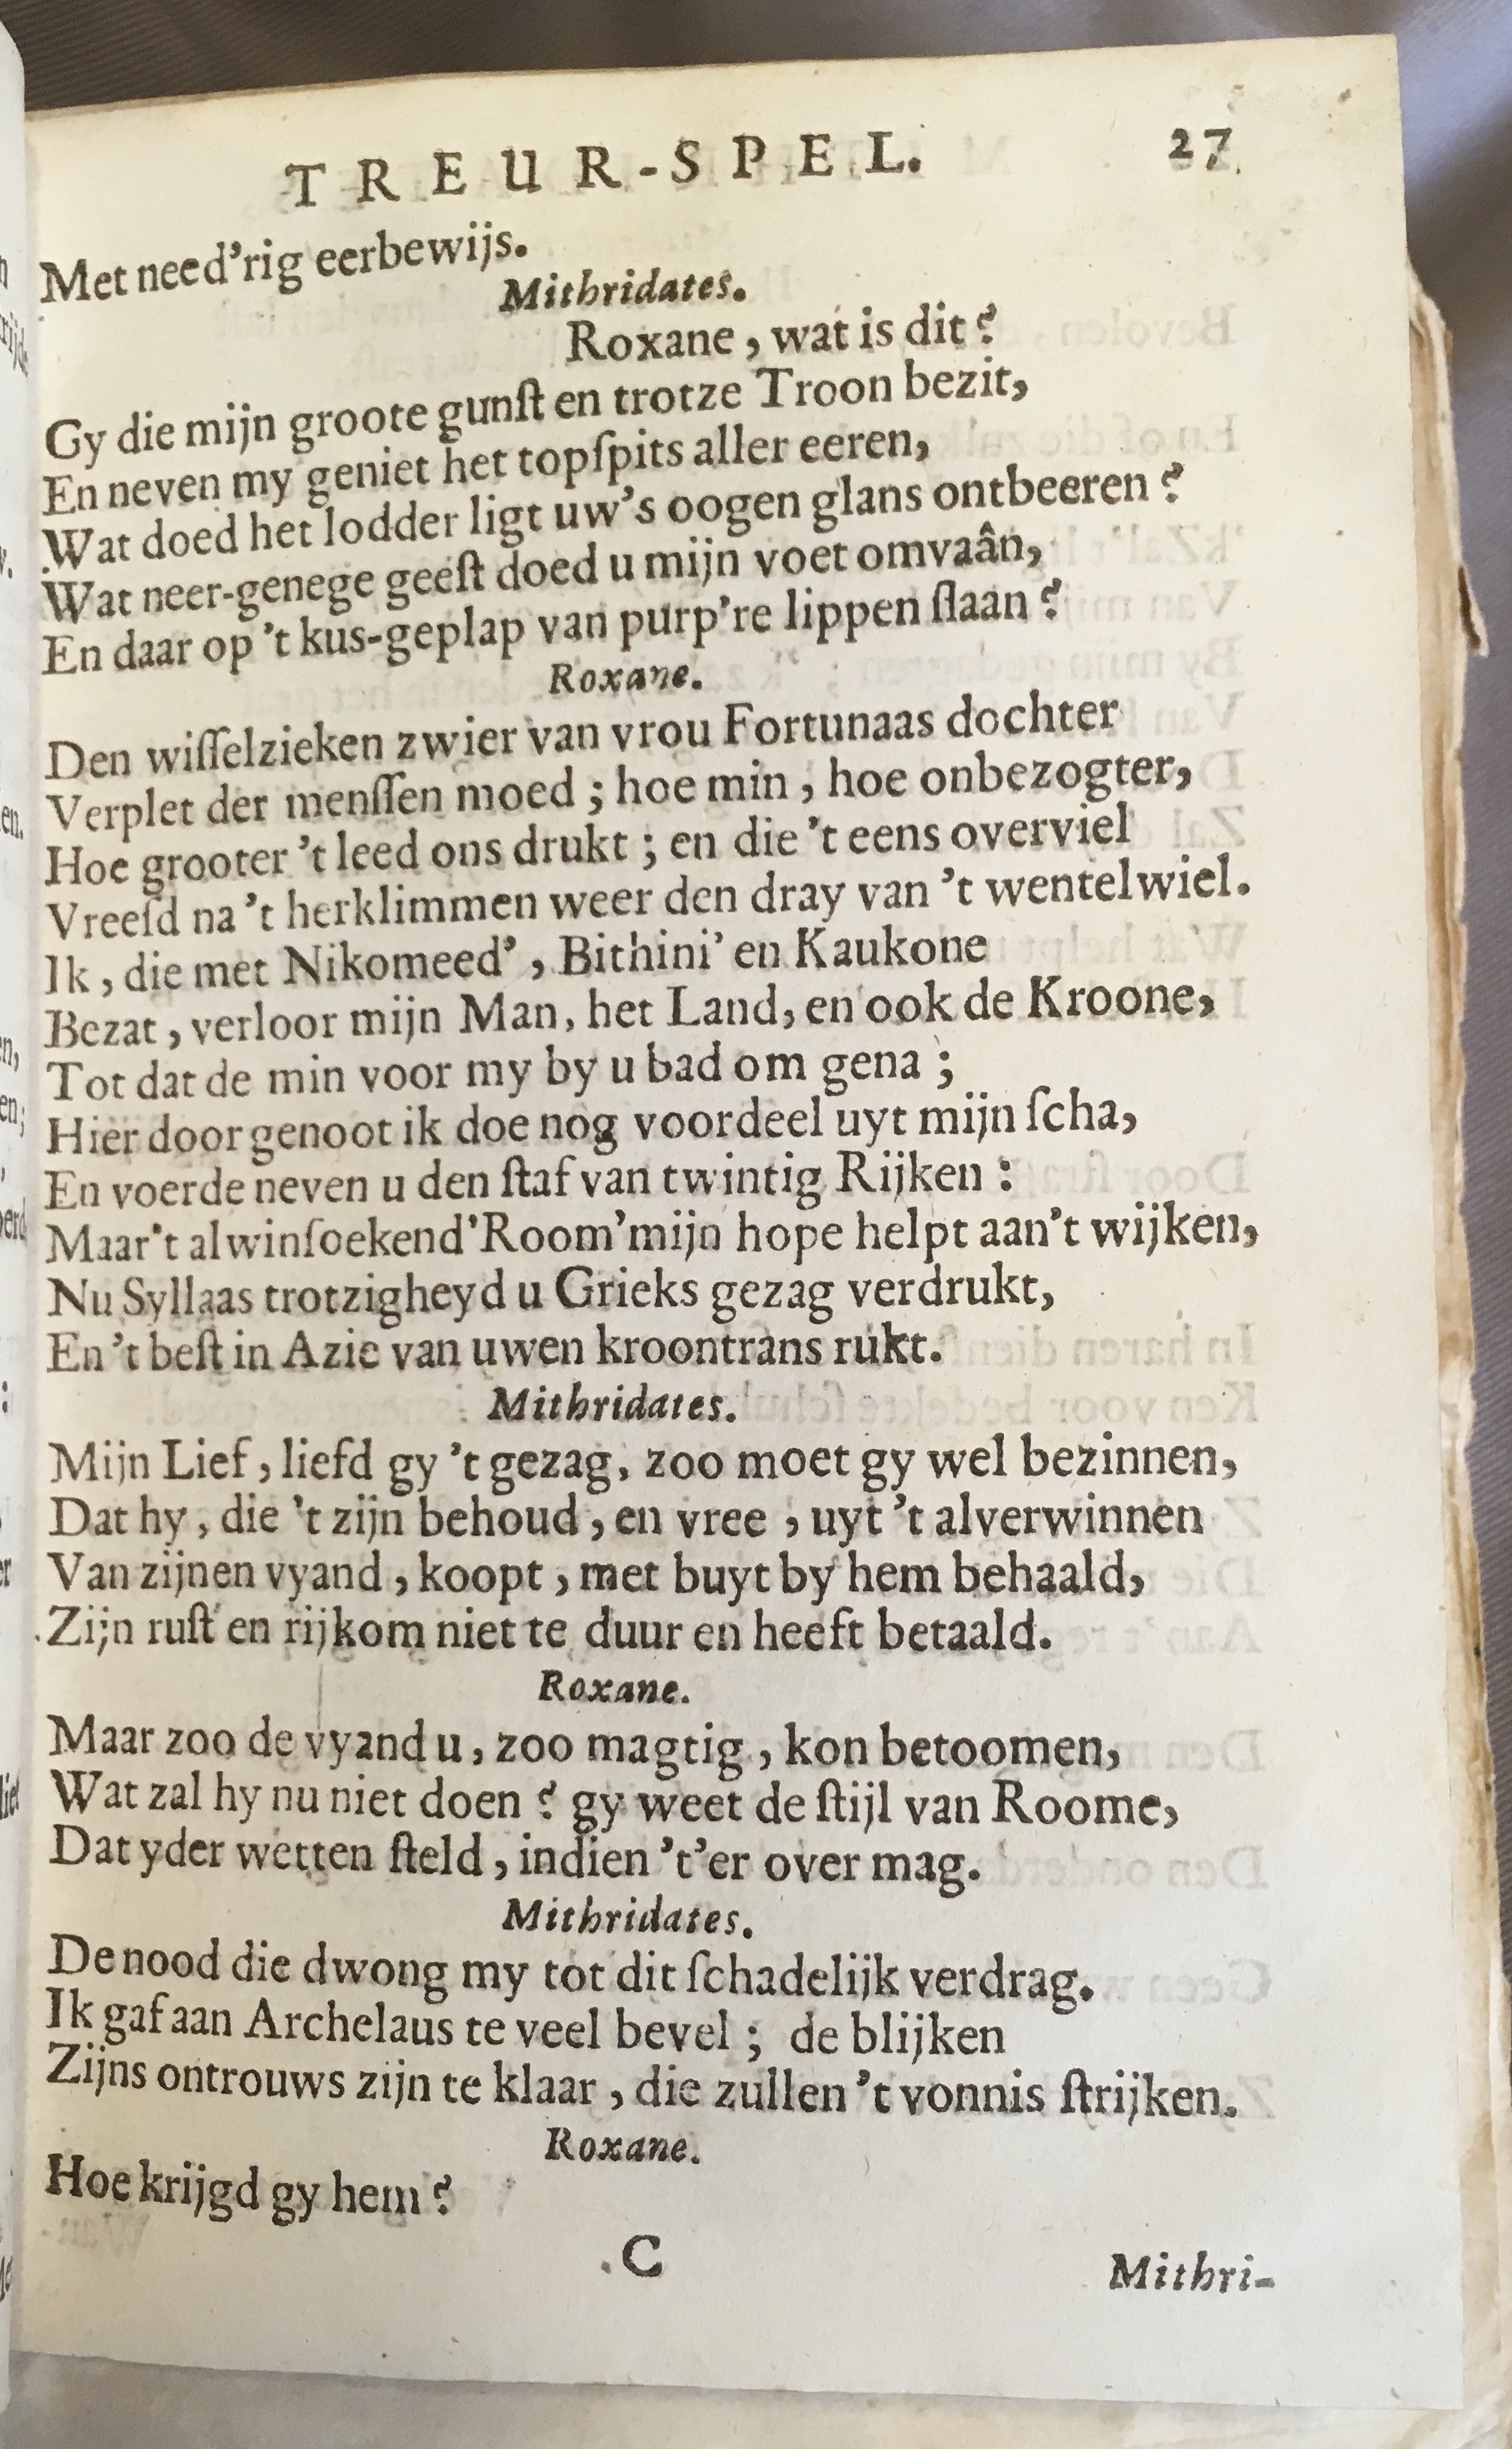 TREUR-SPEL. 27
Met need'rig eerbewijs.
Mithridates.
Roxane, wat is dit?
Gy die mijn groote gunſt en trotze Troon bezit,
En neven my geniet het topſpits aller eeren,
Wat doed het lodder ligt uw's oogen glans ontbeeren?
Wat neer-genege geeſt doed u mijn voet omvaân,
En daar op 't kus-geplap van purp're lippen ſlaan?
Roxane.
Den wiſſelzieken zwier van vrou Fortunaas dochter
Verplet der menſſen moed; hoe min, hoe onbezogter,
Hoe grooter 't leed ons drukt; en die 't eens overviel
Vreeſd na 't herklimmen weer den dray van 't wentelwiel.
Ik, die met Nikomeed', Bithini' en Kaukone
Bezat, verloor mijn Man, het Land, en ook de Kroone,
Tot dat de min voor my by u bad om gena;
Hier door genoot ik doe nog voordeel uyt mijn ſcha,
En voerde neven u den ſtaf van twintig Rijken:
Maar't alwinſoekend'Room'mijn hope helpt aan't wijken,
Nu Syllaas trotzigheyd u Grieks gezag verdrukt,
En 't beſt in Azie van uwen kroontrans rukt.
Mithridates.
Mijn Lief, liefd gy 't gezag, zoo moet gy wel bezinnen,
Dat hy, die 't zijn behoud, en vree, uyt 't alverwinnen
Van zijnen vyand, koopt, met buyt by hem behaald,
Zijn ruſt en rijkom niet te duur en heeft betaald.
Roxane.
Maar zoo de vyand u, zoo magtig, kon betoomen,
Wat zal hy nu niet doen? gy weet de ſtijl van Roome,
Dat yder wetten ſteld, indien 't'er over mag.
Mithridates.
De nood die dwong my tot dit ſchadelijk verdrag.
Ik gaf aan Archelaus te veel bevel; de blijken
Zijns ontrouws zijn te klaar, die zullen 't vonnis ſtrijken.
Roxane.
Hoe krijgd gy hem?
C Mithri-